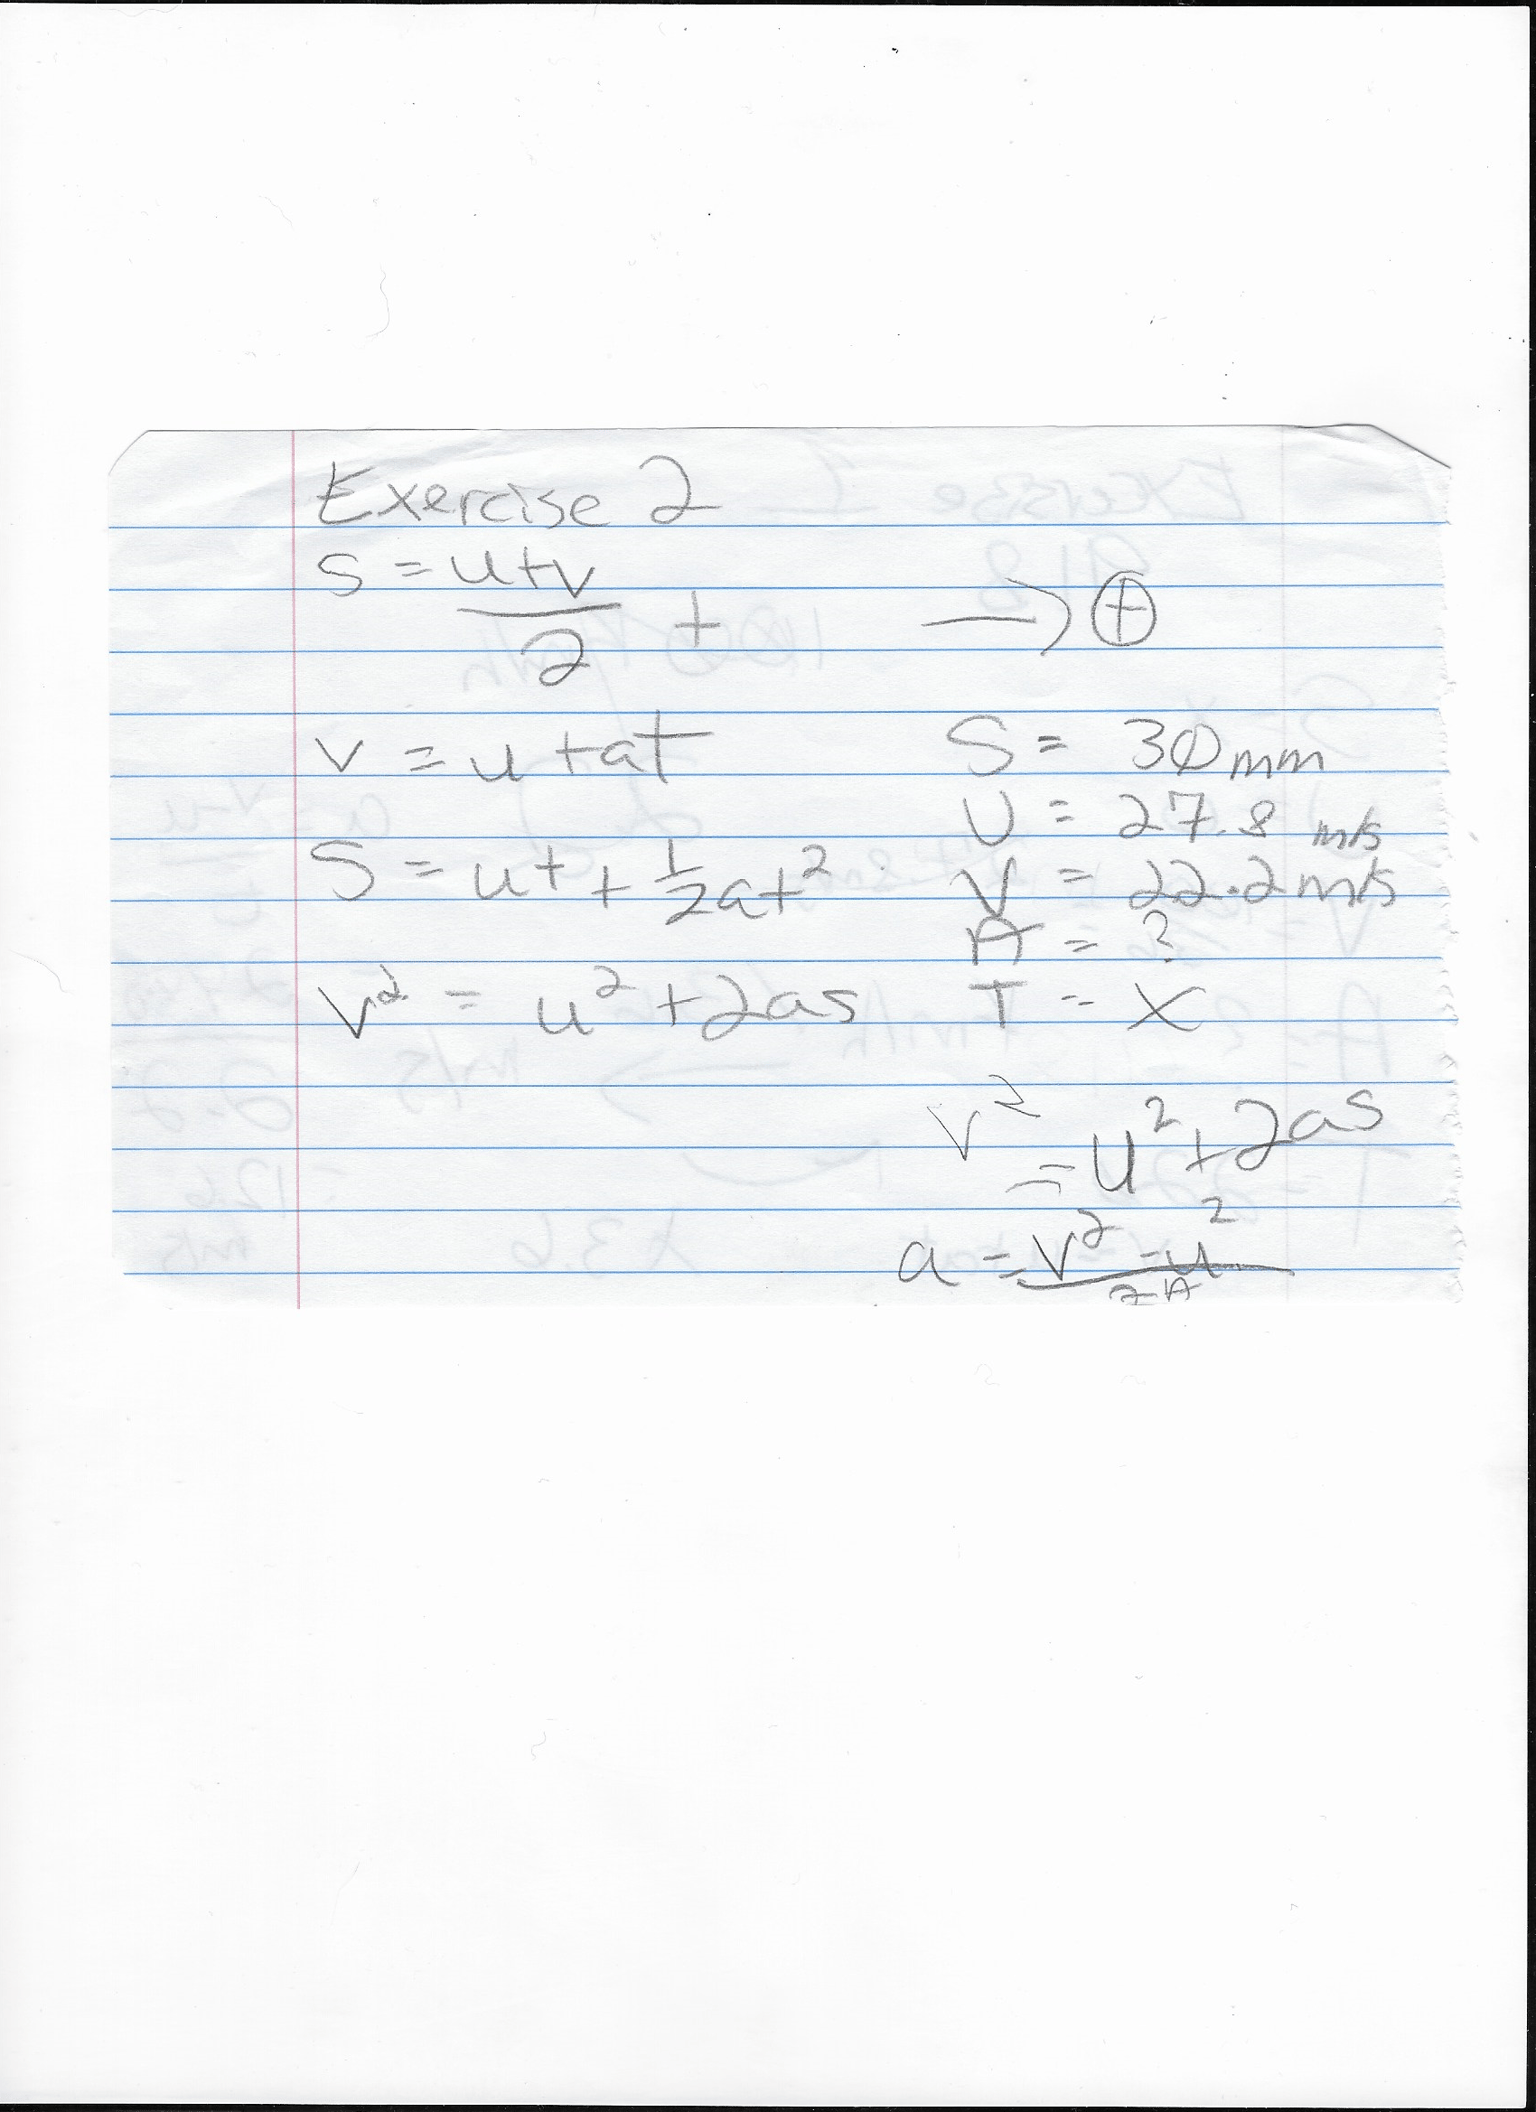 Exercise 2
s = u+v
2 t → ⊕
v = u + at
S = ut + 1/2 at²
v² = u² + 2as
S = 30mm
U = 27.8 m/s
V = 22.2 m/s
A = ?
T = X
v² = u² + 2as
a = v² - u²